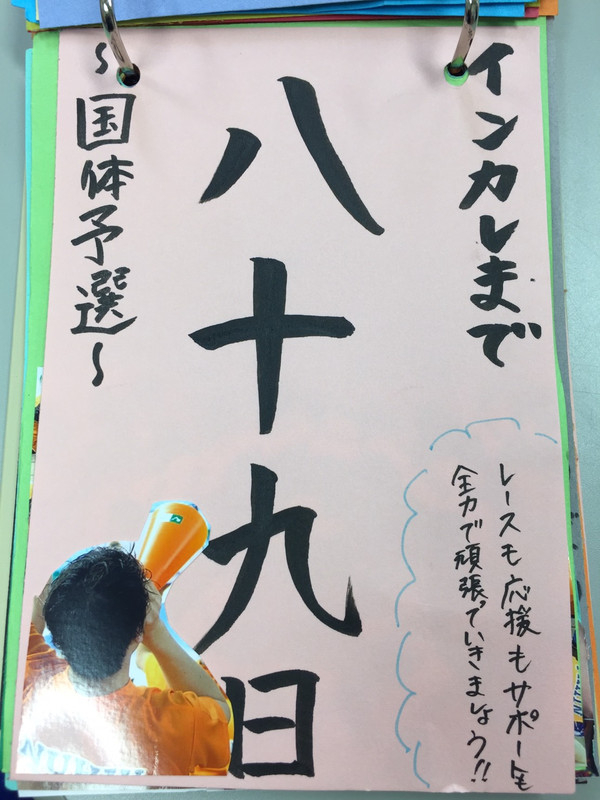 インカレまで
八十九日
〜国体予選〜
レースも応援もサポートも
全力で頑張っていきましょう!!